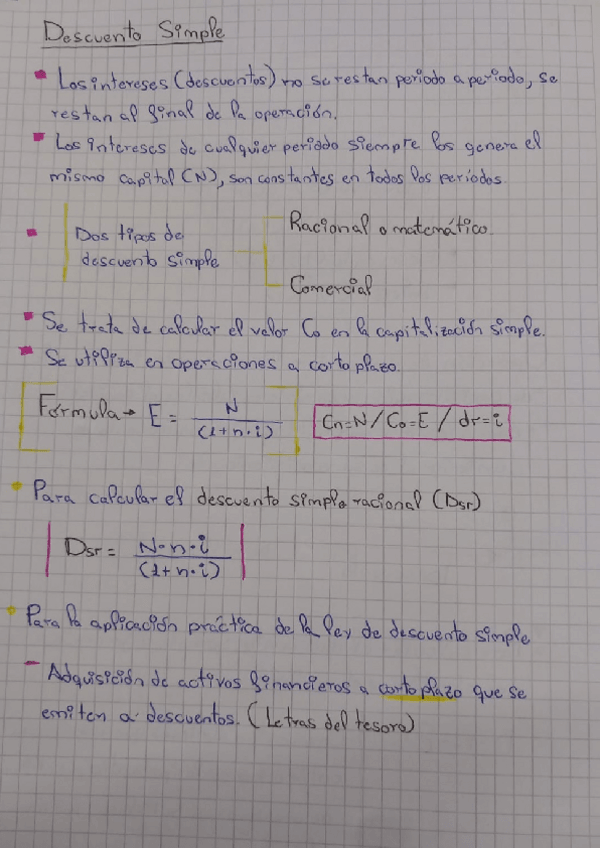 Descuento Simple
Los intereses (descuentos) no se restan periodo a periodo, se
restan al final de la operación.
Los intereses de cualquier periodo siempre los genera el
mismo capital (N), son constantes en todos los periodos.
Dos tipos de
descuento simple
Racional o matemático.
Comercial
Se trata de calcular el valor Co en la capitalización simple.
Se utiliza en operaciones a corto plazo.
Fórmula → E = N / (1+n·i)
Cn=N / Co=E / dr=i
Para calcular el descuento simple racional (Dsr)
Dsr = N·n·i / (1+n·i)
Para la aplicación práctica de la ley de descuento simple
- Adquisición de activos financieros a corto plazo que se
emiten a descuentos. (Letras del tesoro)